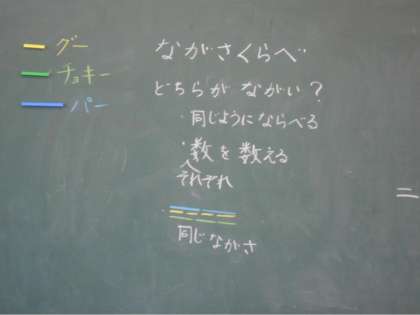 グー
チョキー
パー
ながさくらべ
どちらが ながい?
・同じようにならべる
・数を数える
それぞれ
同じながさ
=